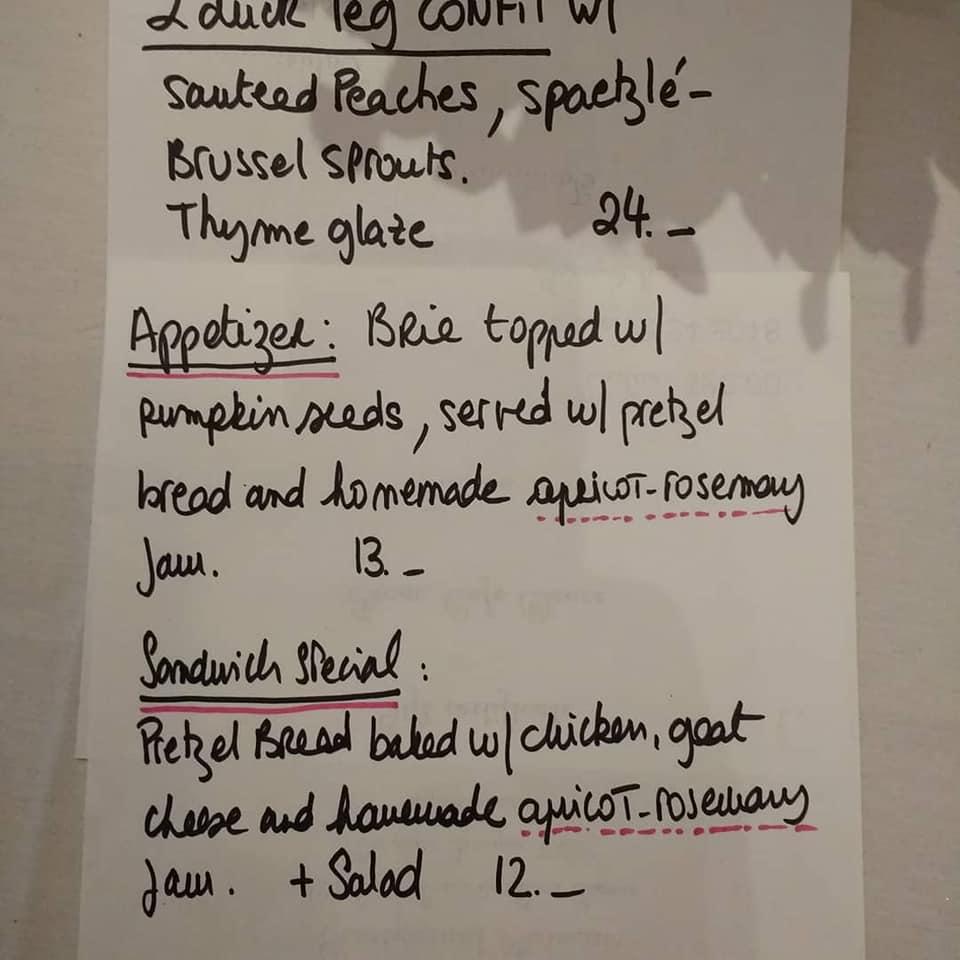 2 duck leg CONFIT w/
sauteed Peaches, spaetzlé-
Brussel sprouts.
Thyme glaze 24.-
Appetizer: Brie topped w/
pumpkin seeds, served w/ pretzel
bread and homemade apricot-rosemary
Jam. 13.-
Sandwich special:
Pretzel Bread baked w/ chicken, goat
cheese and homemade apricot-rosemary
Jam. + Salad 12.-